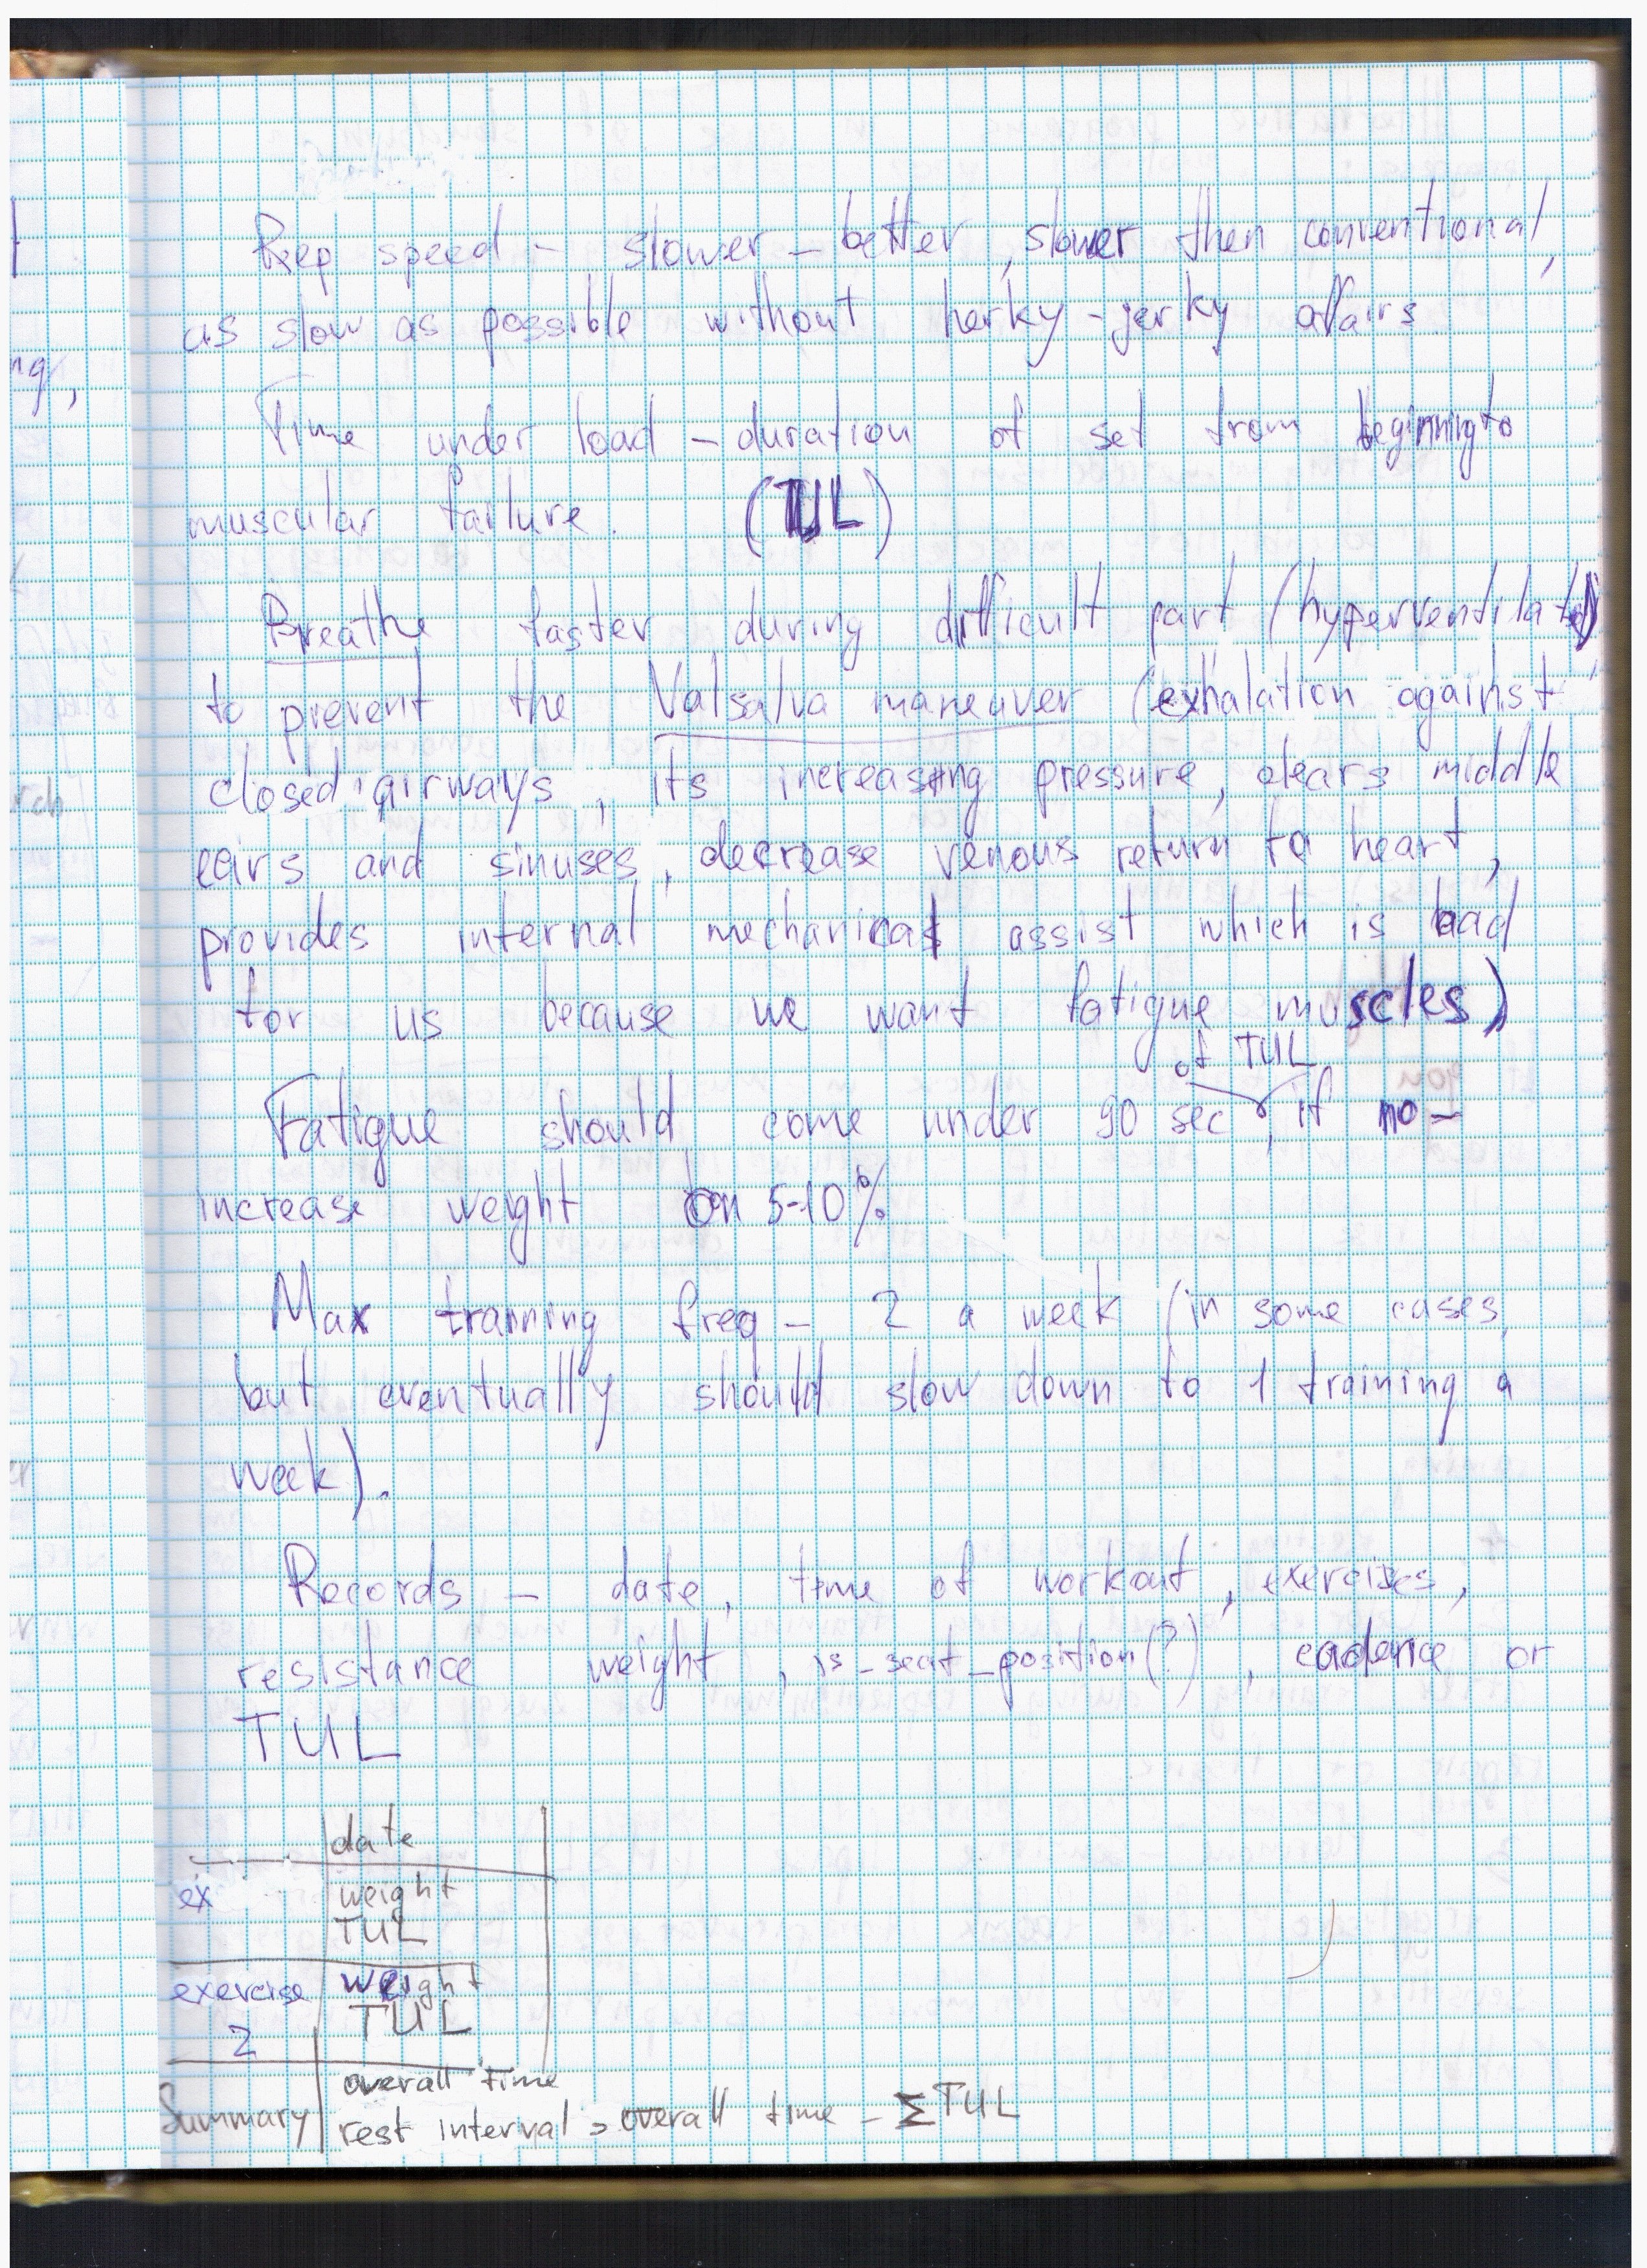 Rep speed - slower - better, slower then conventional,
as slow as possible without herky-jerky affairs
Time under load - duration of set from beginning to
muscular failure. (TUL)
Breathe faster during difficult part (hyperventilate)
to prevent the Valsalva maneuver (exhalation against
closed airways, its increasing pressure, clears middle
ears and sinuses, decrease venous return to heart,
provides internal mechanical assist which is bad
for us because we want fatigue muscles)
of TUL
Fatigue should come under 90 sec, if no -
increase weight on 5-10%
Max training freq - 2 a week (in some cases,
but eventually should slow down to 1 training a
week).
Records - date, time of workout, exercises,
resistance weight, is_seat_position(?), cadence or
TUL
date
ex weight
TUL
exercise weight
2 TUL
overall time
Summary rest interval > overall time - ΣTUL
ng,